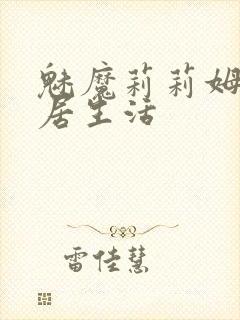 魅魔莉莉姆
居生活
雷佳慧